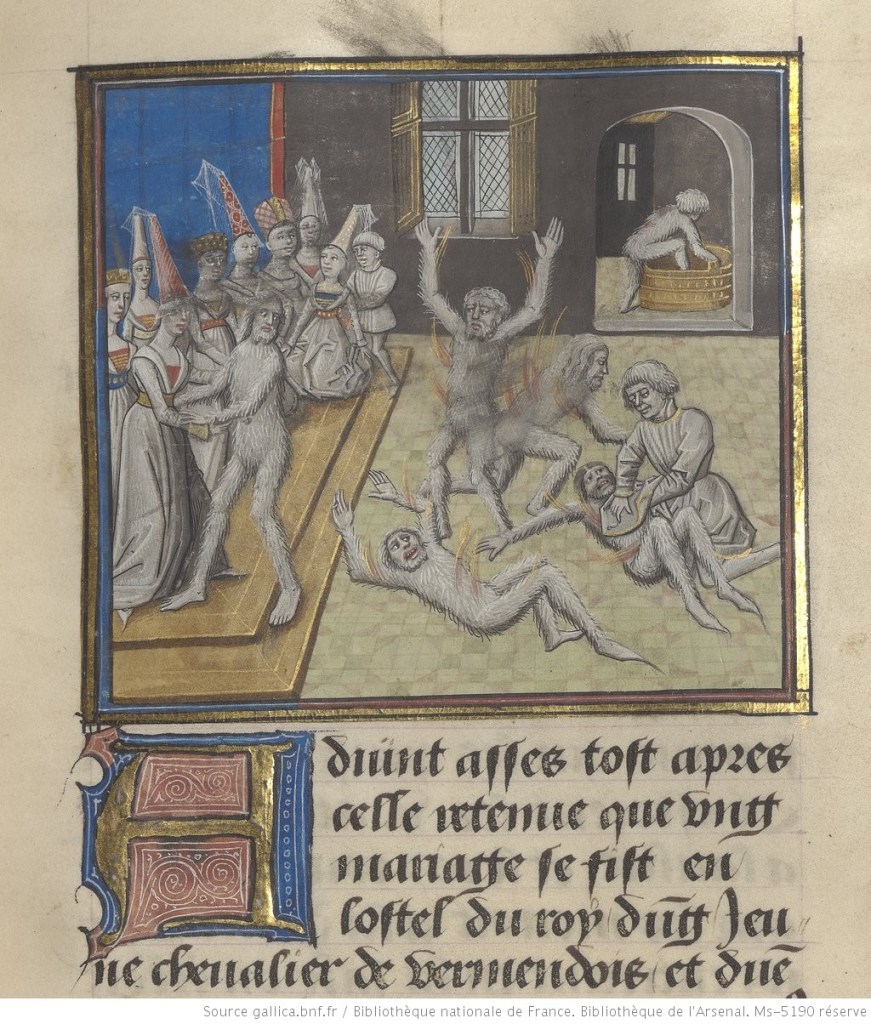 Aduint asses tost apres
celle retenue que vng
mariage se fist en
lostel du roy dūg Jeu
ne cheualier de vermendois et dūe
Source gallica.bnf.fr / Bibliothèque nationale de France. Bibliothèque de l'Arsenal. Ms-5190 réserve